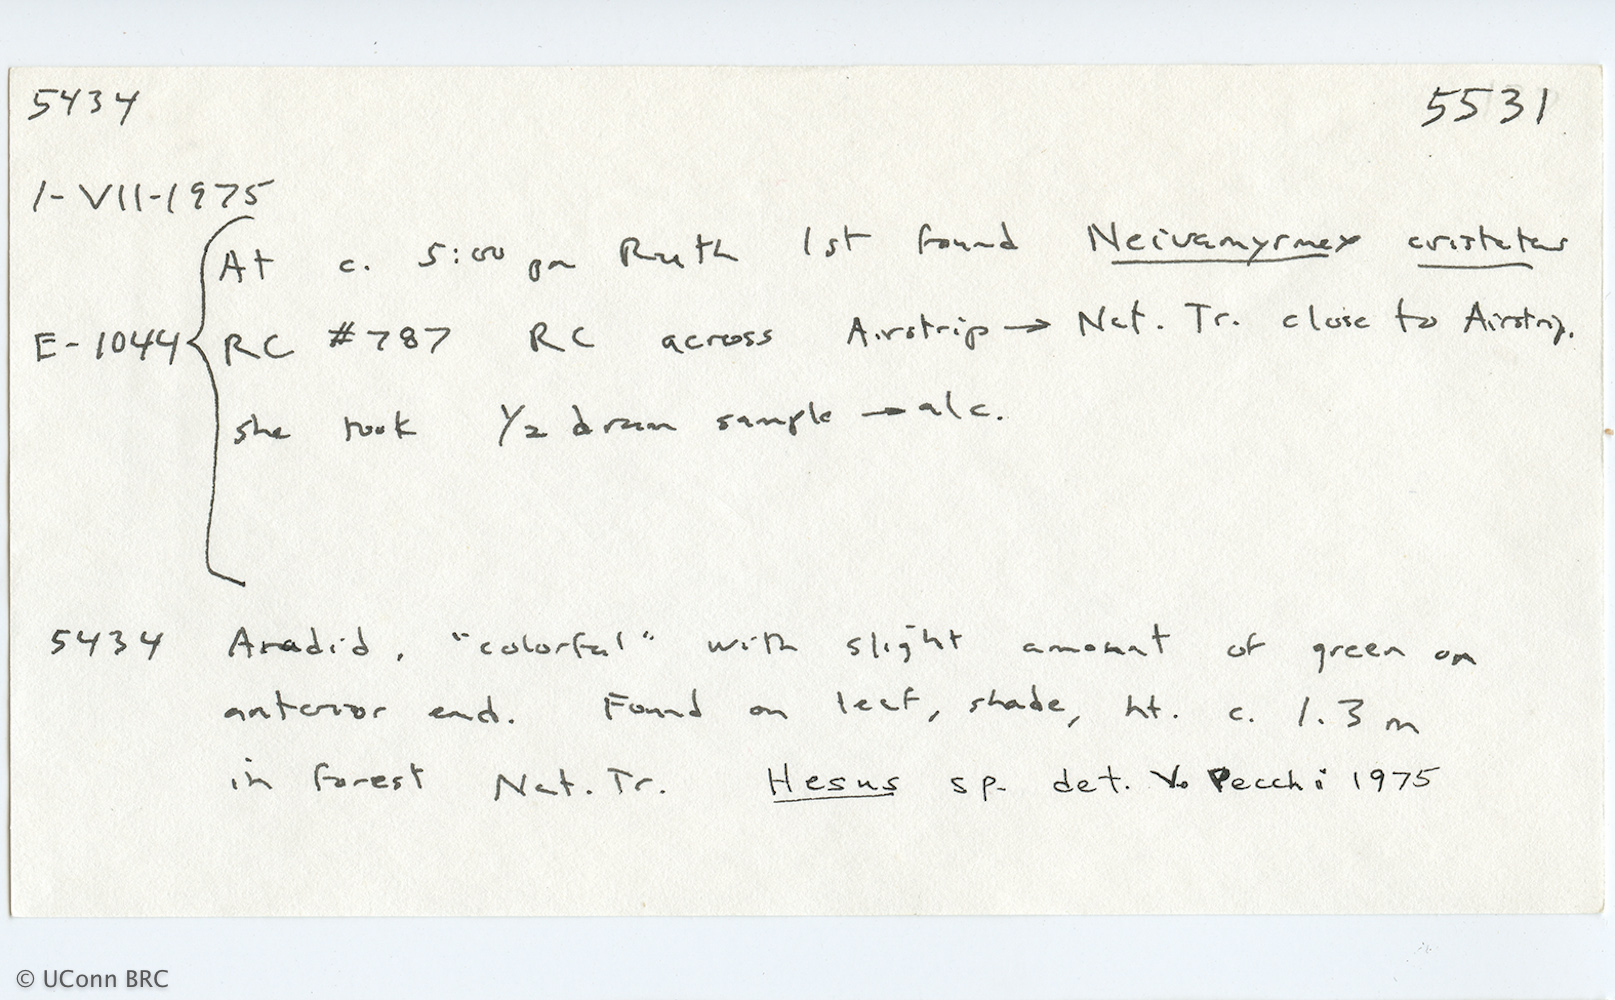 5434 5531
1-VII-1975
At c. 5:00 pm Ruth 1st found Neivamyrmex cristatus
E-1044 RC #787 RC across Airstrip → Nat. Tr. close to Airstrip.
she took 1/2 dram sample → alc.
5434 Aradid, "colorful" with slight amount of green on
anterior end. Found on leaf, shade, ht. c. 1.3 m
in forest Nat. Tr. Hesus sp. det. V. Pecchi 1975
© UConn BRC